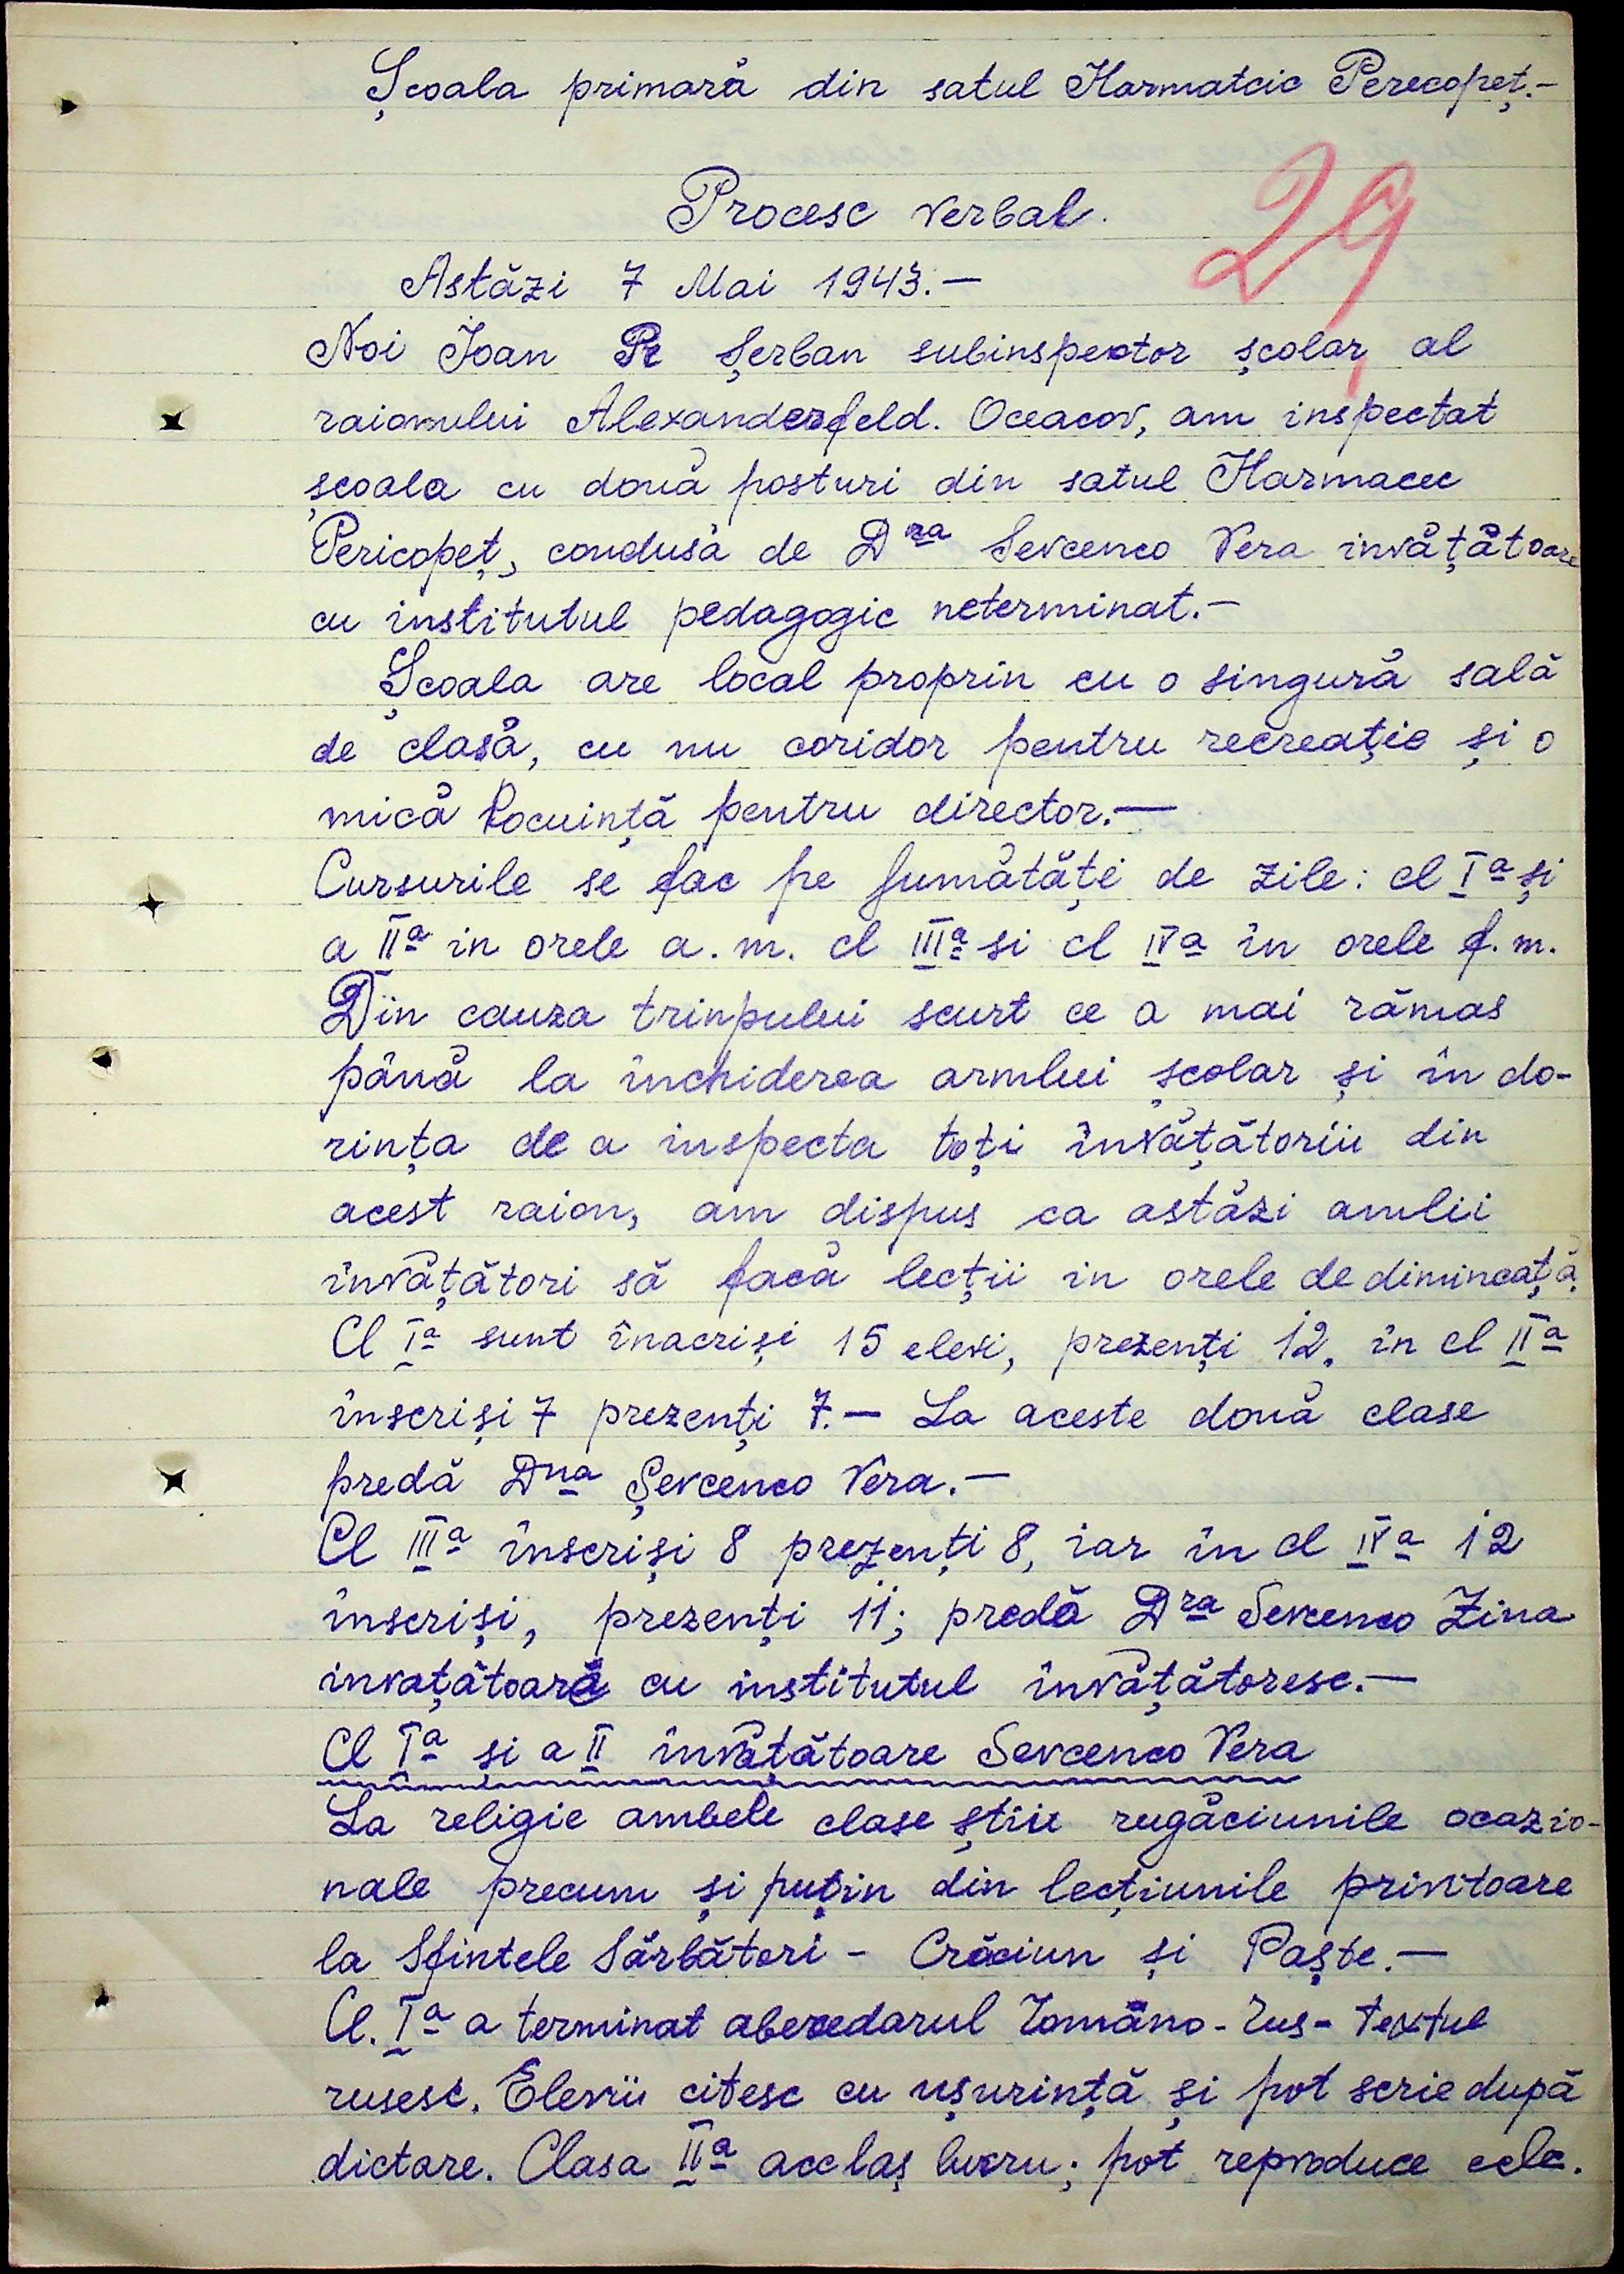 Școala primară din satul Harmatcic Perecopeț.-
29
Procesc verbal.
Astăzi 7 Mai 1943.-
Noi Ioan Pr Șerban subinspector școlar, al
raionului Alexanderfeld. Oceacov, am inspectat
școala cu două posturi din satul Harmacec
Pericopeț, condusă de Dra Sevcenco Vera invățătoare
cu institutul pedagogic neterminat.-
Școala are local propriu cu o singură sală
de clasă, cu nu coridor pentru recreație și o
mică locuință pentru director.-
Cursurile se fac pe jumătăți de zile: cl Ia și
a IIa in orele a.m. cl IIIa si cl IVa în orele p.m.
Din cauza trinpului scurt ce a mai rămas
până la închiderea armlui școlar și în do-
rința de a inspecta toți învățătorii din
acest raion, am dispus ca astăzi amlii
învățători să facă lecții in orele de dimineață.
Cl Ia sunt înacriși 15 elevi, prezenți 12. în cl IIa
înscriși 7 prezenți 7.- La aceste două clase
predă Dna Șevcenco Vera.-
Cl IIIa înscriși 8 prezenți 8, iar în cl IVa 12
înscriși, prezenți 11; predă Dra Sevcenco Zina
invațătoară cu institutul învățătoresc.-
Cl Ia și a II învățătoare Sevcenco Vera
La religie ambele clase știu rugăciunile ocazio-
nale precum și puțin din lecțiunile privitoare
la Sfintele Sărbători - Crăciun și Paște.-
Cl. Ia a terminat abecedarul Româno-Rus- textul
rusesc. Elevii citesc cu ușurință și pot scrie după
dictare. Clasa IIa acelaș lucru; pot reproduce cele.